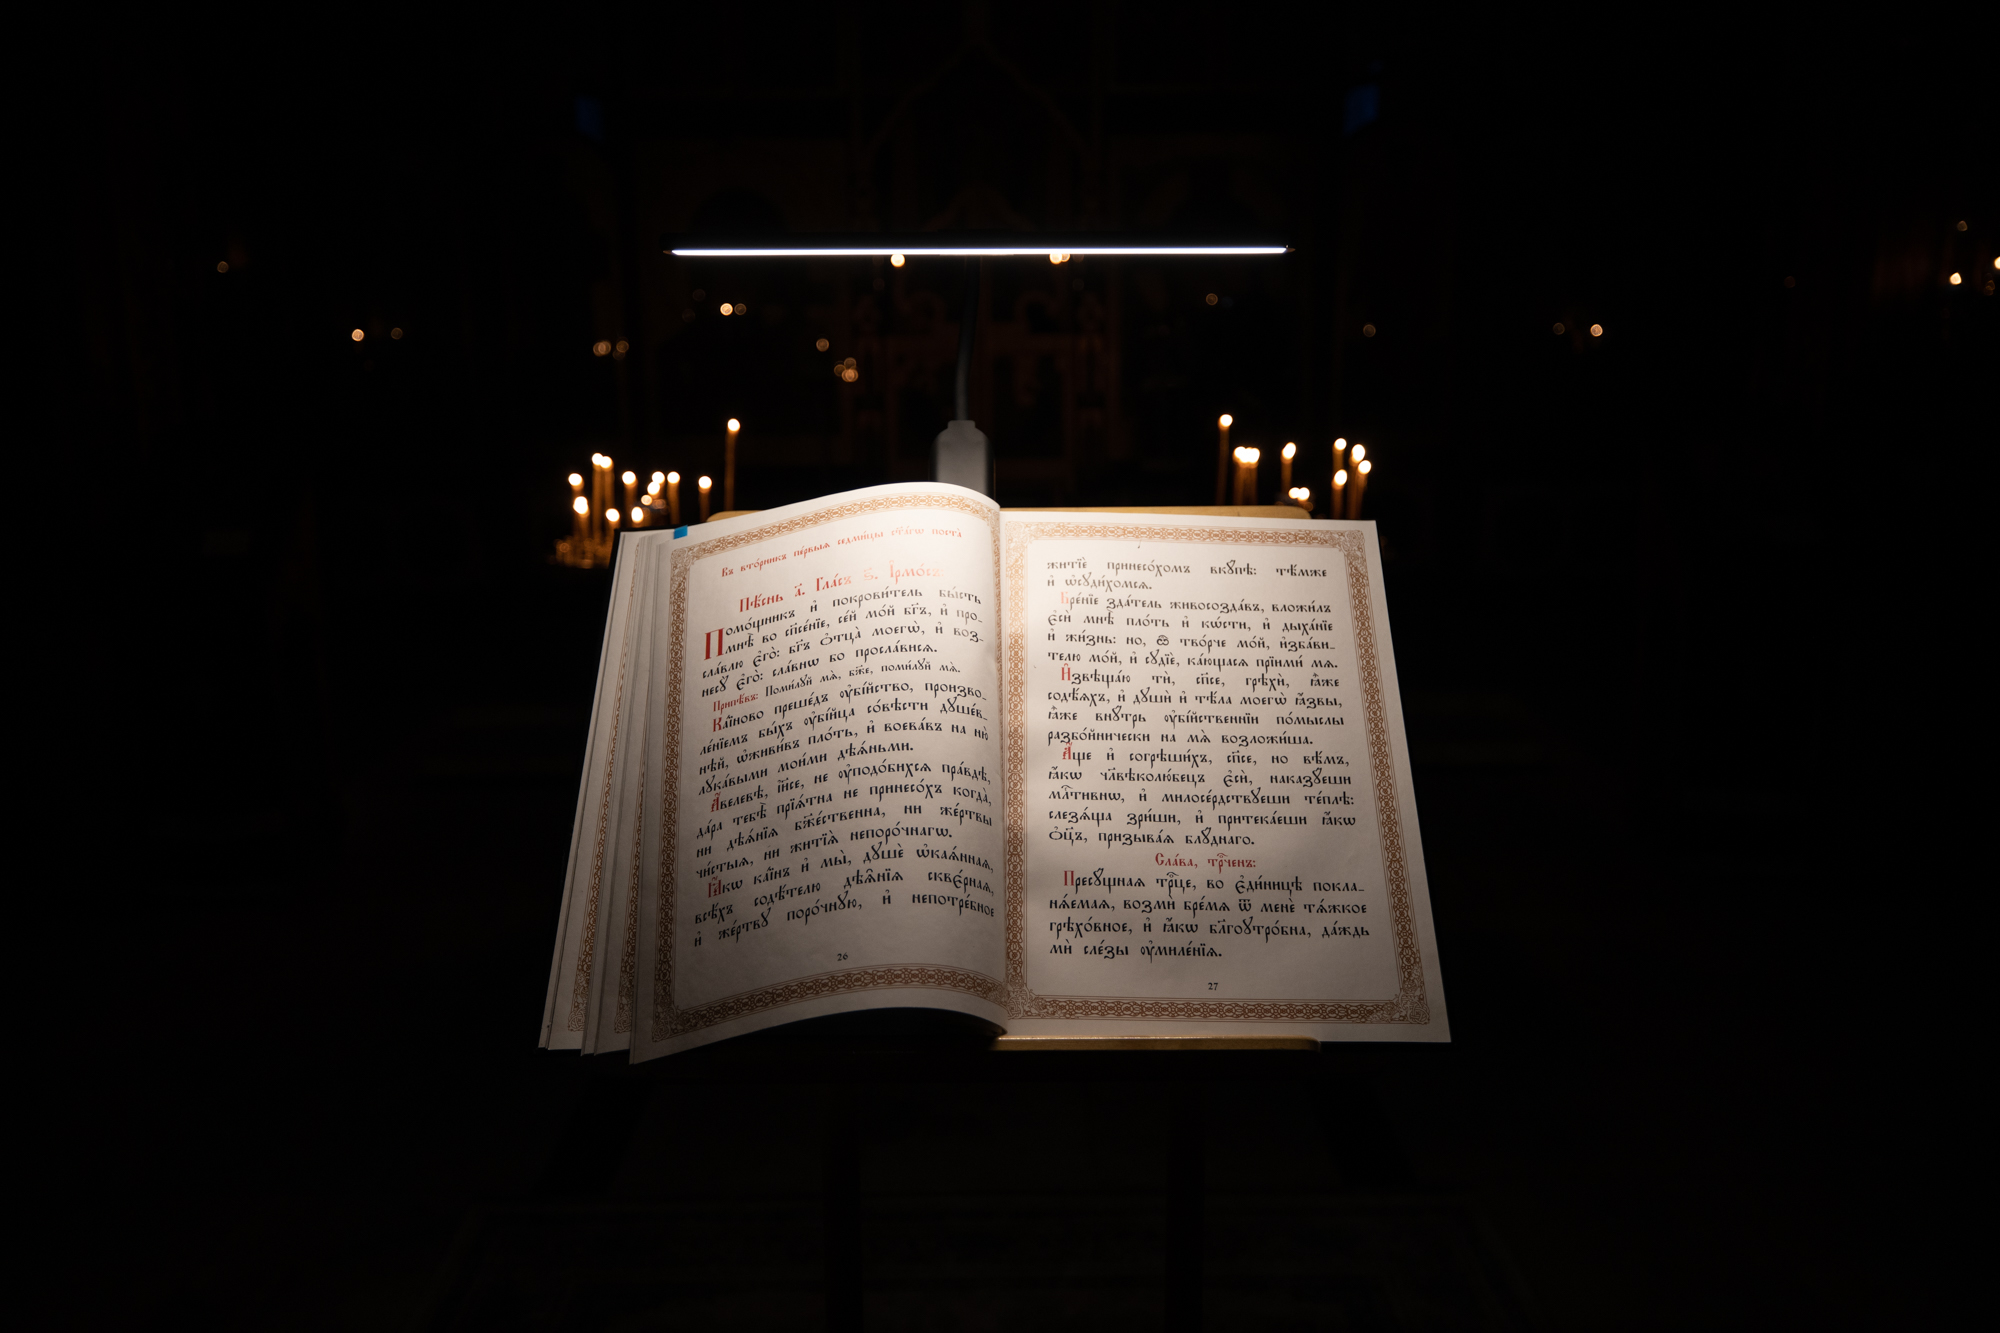 Въ вто́рникъ пе́рвыѧ седми́цы ст҃а́гѡ поста̀
Пѣ́снь а҃. Гла́съ ѕ҃. І҆рмо́съ:
Помо́щникъ и҆ покрови́тель бы́сть
мнѣ̀ во сп҃се́нїе, се́й мо́й бг҃ъ, и҆ про-
сла́влю є҆го̀: бг҃ъ ѻ҆тца̀ моегѡ̀, и҆ воз-
несꙋ̀ є҆го̀: сла́внѡ бо просла́висѧ.
Припѣ́въ: Поми́лꙋй мѧ̀, бж҃е, поми́лꙋй мѧ̀.
Ка́їново преше́дъ ᲂу҆бі́йство, произво-
ле́нїемъ бы́хъ ᲂу҆бі́йца со́вѣсти дꙋше́в-
нѣй, ѡ҆живи́въ пло́ть, и҆ воева́въ на ню̀
лꙋка́выми мои́ми дѣѧ́ньми.
А҆́велевѣ, і҆и҃се, не ᲂу҆подо́бихсѧ пра́вдѣ,
да́ра тебѣ̀ прїѧ́тна не принесо́хъ когда̀,
ни дѣѧ́нїѧ бж҃е́ственна, ни же́ртвы
чи́стыѧ, ни житїѧ̀ непоро́чнагѡ.
Ꙗ҆́кѡ ка́їнъ и҆ мы̀, дꙋшѐ ѡ҆каѧ́ннаѧ,
всѣ́хъ содѣ́телю дѣѧ̑нїѧ скве́рнаѧ,
и҆ же́ртвꙋ поро́чнꙋю, и҆ непотре́бное
26
житїѐ принесо́хомъ вкꙋ́пѣ: тѣ́мже
и҆ ѡ҆сꙋди́хомсѧ.
Бре́нїе зда́тель живосозда́въ, вложи́лъ
є҆сѝ мнѣ̀ пло́ть и҆ кѡ́сти, и҆ дыха́нїе
и҆ жи́знь: но, ѽ тво́рче мо́й, и҆зба́ви-
телю мо́й, и҆ сꙋдїѐ, ка́ющасѧ прїимѝ мѧ.
И҆звѣща́ю тѝ, сп҃се, грѣхѝ, ꙗ҆̀же
содѣ́ѧхъ, и҆ дꙋшѝ и҆ тѣ́ла моегѡ̀ ꙗ҆́звы,
ꙗ҆̀же внꙋ́трь ᲂу҆бі́йственнїи по́мыслы
разбо́йнически на мѧ̀ возложи́ша.
А҆́ще и҆ согрѣши́хъ, сп҃се, но вѣ́мъ,
ꙗ҆́кѡ чл҃вѣколю́бецъ є҆сѝ, наказꙋ́еши
млⷭ҇тивнѡ, и҆ милосе́рдствꙋеши те́плѣ:
слезѧ́ща зри́ши, и҆ притека́еши ꙗ҆́кѡ
ѻ҆ц҃ъ, призыва́ѧ блꙋ́днаго.
Сла́ва, трⷪ҇ченъ:
Пресꙋ́щнаѧ трⷪ҇це, во є҆ди́ницѣ покла-
нѧ́емаѧ, возмѝ бре́мѧ ѿ менє̀ тѧ́жкое
грѣхо́вное, и҆ ꙗ҆́кѡ бл҃гоꙋтро́бна, да́ждь
мѝ сле́зы ᲂу҆миле́нїѧ.
27